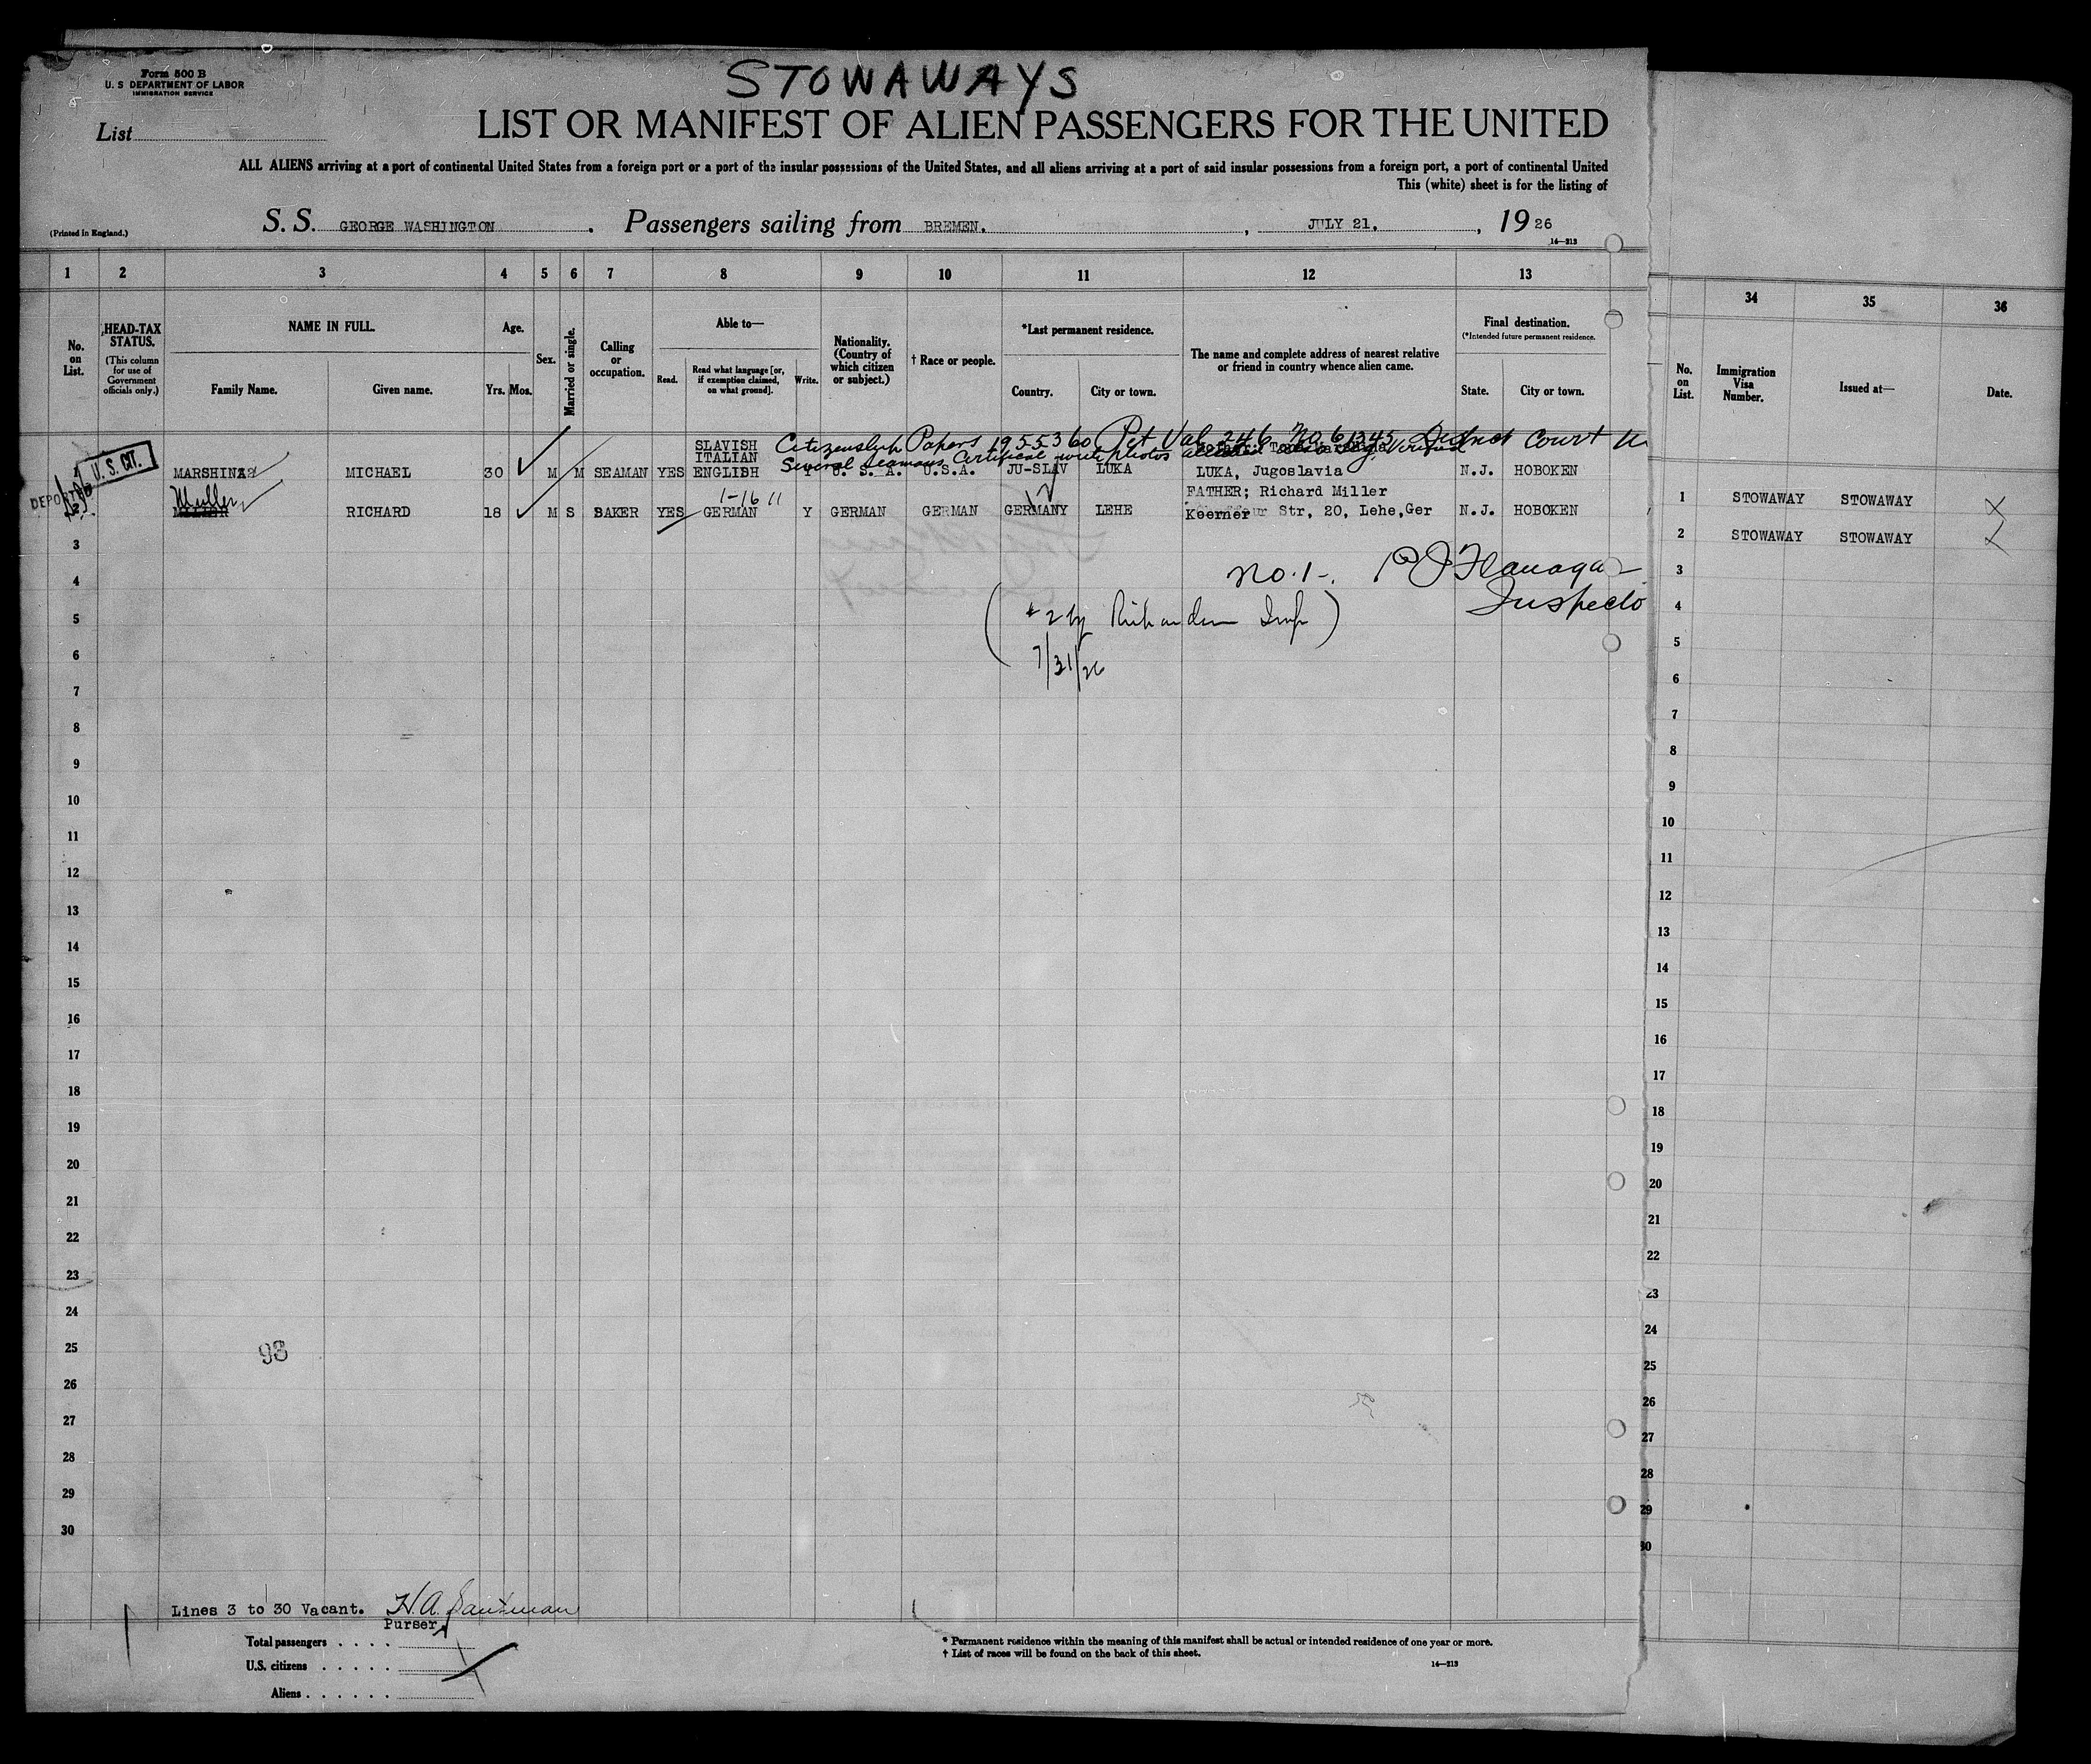 Form 500 B
U. S DEPARTMENT OF LABOR
IMMIGRATION SERVICE
STOWAWAYS
List
LIST OR MANIFEST OF ALIEN PASSENGERS FOR THE UNITED
ALL ALIENS arriving at a port of continental United States from a foreign port or a port of the insular possessions of the United States, and all aliens arriving at a port of said insular possessions from a foreign port, a port of continental United
This (white) sheet is for the listing of
(Printed in England.)
S. S. GEORGE WASHINGTON . Passengers sailing from BREMEN. , JULY 21. , 1926
14—313
1 2 3 4 5 6 7 8 9 10 11 12 13
34 35 36
No. on List.
HEAD-TAX STATUS.
(This column for use of Government officials only.)
NAME IN FULL.
Family Name. Given name.
Age.
Yrs. Mos.
Sex.
Married or single.
Calling or occupation.
Able to—
Read. Read what language [or, if exemption claimed, on what ground]. Write.
Nationality. (Country of which citizen or subject.)
† Race or people.
*Last permanent residence.
Country. City or town.
The name and complete address of nearest relative or friend in country whence alien came.
Final destination.
(*Intended future permanent residence.
State. City or town.
No. on List.
Immigration Visa Number.
Issued at—
Date.
SLAVISH Citizenship Papers 1955360 Pet Vol 246 No. 61345 District Court
ITALIAN Several Seamans Certificate with photos also Verified
U. S. CIT.
MICHAEL 30 M M SEAMAN YES ENGLISH Y U. S. A. U.S.A. JU-SLAV LUKA LUKA, Jugoslavia N.J. HOBOKEN
DEPORTED
Muller
1-16 11
FATHER; Richard Miller
RICHARD 18 M S BAKER YES GERMAN Y GERMAN GERMAN GERMANY LEHE Str, 20, Lehe,Ger N.J. HOBOKEN
1 STOWAWAY STOWAWAY
2 STOWAWAY STOWAWAY
No. 1-. Flanagan
Inspecto
(#2 by Richardson Insp)
7/31/26
3
4
5
6
7
8
9
10
11
12
13
14
15
16
17
18
19
20
21
22
23
24
25
26
27
28
29
30
3
4
5
6
7
8
9
10
11
12
13
14
15
16
17
18
19
20
21
22
23
24
25
26
27
28
29
30
93
Lines 3 to 30 Vacant. H.A.
Purser
Total passengers . . . .
U.S. citizens . . . . .
Aliens . . . . . .
* Permanent residence within the meaning of this manifest shall be actual or intended residence of one year or more.
† List of races will be found on the back of this sheet.
14—313